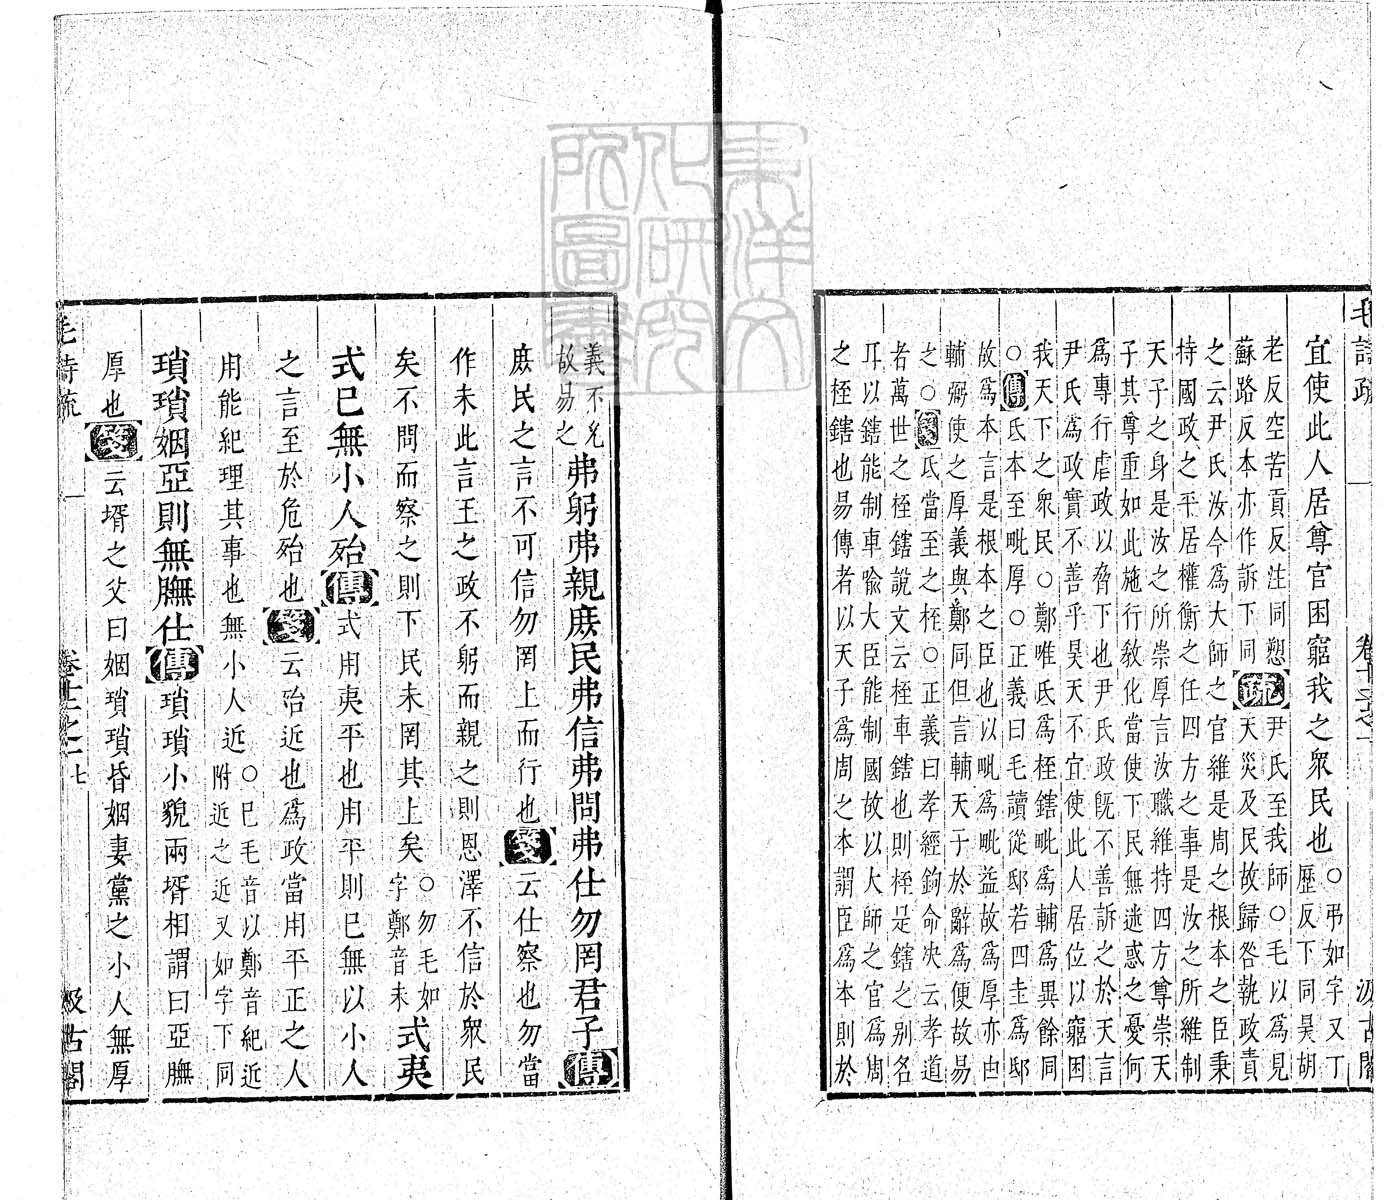 毛詩疏 卷十二之一 汲古閣
宜使此人居尊官困窮我之衆民也○弔如字又丁
歷反下同昊胡
老反空苦貢反注同愬
蘇路反本亦作訴下同疏尹氏至我師○毛以爲見
天災及民故歸咎執政責
之云尹氏汝今爲大師之官維是周之根本之臣秉
持國政之平居權衡之任四方之事是汝之所維制
天子之身是汝之所崇厚言汝職維持四方尊崇天
子其尊重如此施行敎化當使下民無迷惑之憂何
爲專行虐政以脅下也尹氏政旣不善訴之於天言
尹氏爲政實不善乎昊天不宜使此人居位以窮困
我天下之衆民○鄭唯氐爲桎鎋毗爲輔爲異餘同
○傳氐本至毗厚○正義曰毛讀從邸若四圭爲邸
故爲本言是根本之臣也以毗爲毗益故爲厚亦由
輔弼使之厚義與鄭同但言輔天子於辭爲便故易
之○箋氐當至之桎○正義曰孝經鉤命决云孝道
者萬世之桎鎋說文云桎車鎋也則桎是鎋之别名
耳以鎋能制車喻大臣能制國故以大師之官爲周
之桎鎋也易傳者以天子爲周之本謂臣爲本則於
義不允
故易之弗躬弗親庶民弗信弗問弗仕勿罔君子傳
庶民之言不可信勿罔上而行也箋云仕察也勿當
作末此言王之政不躬而親之則恩澤不信於衆民
矣不問而察之則下民末罔其上矣○勿毛如
字鄭音末式夷
式已無小人殆傳式用夷平也用平則已無以小人
之言至於危殆也箋云殆近也爲政當用平正之人
用能紀理其事也無小人近○已毛音以鄭音紀近
附近之近又如字下同
瑣瑣姻亞則無膴仕傳瑣瑣小貌兩壻相謂曰亞膴
厚也箋云壻之父曰姻瑣瑣昏姻妻黨之小人無厚
毛詩疏 卷十二之一 七 汲古閣